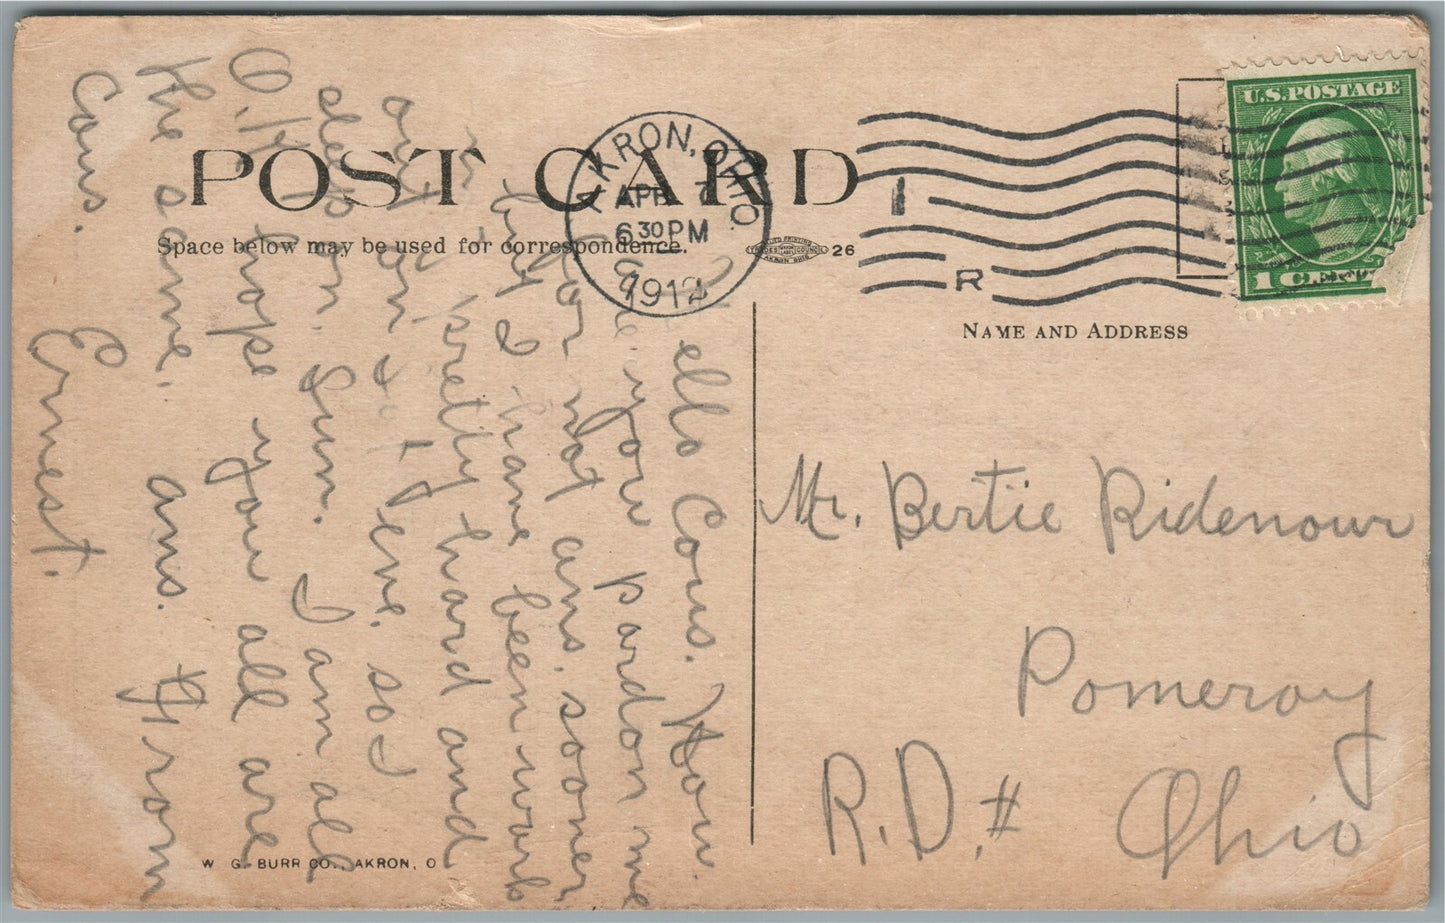 POST CARD
Space below may be used for correspondence.
AKRON, OHIO.
APR 7
6 30 PM
1912
R
26
U.S. POSTAGE
1 CENT
NAME AND ADDRESS
Mr. Bertie Ridenour
Pomeroy
R.D. # Ohio
ello Cous. How
are you pardon me
for not ans. sooner
but I have been work
pretty hard and
out on eve. so I
sleep on Sun. I am all
O.K. hope you all are
the same. ans. From
Cous. Ernest.
W. G. BURR CO., AKRON, O